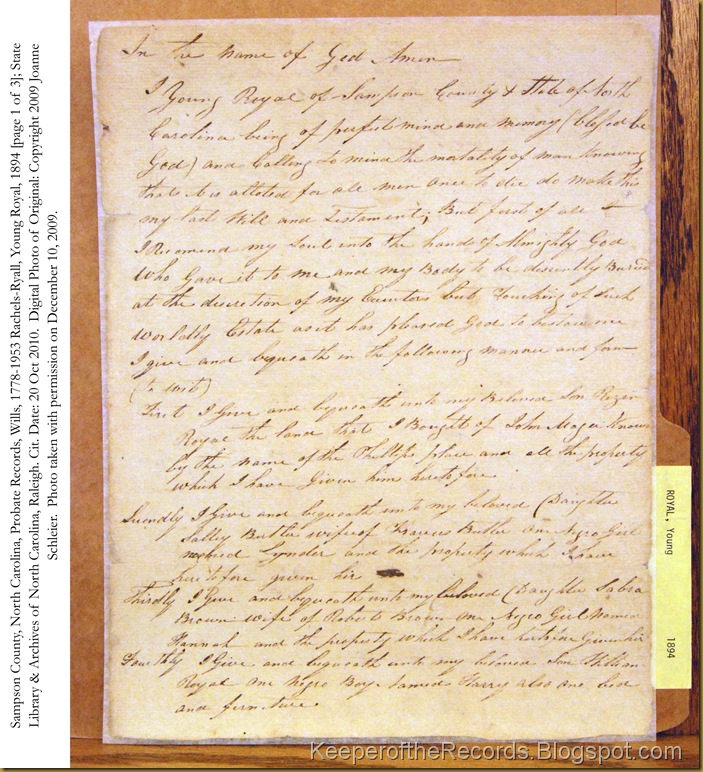 Sampson County, North Carolina, Probate Records, Wills, 1778-1953 Rachels-Ryall, Young Royal, 1894 [page 1 of 3]; State
Library & Archives of North Carolina, Raleigh. Cit. Date: 20 Oct 2010.  Digial Photo of Original: Copyright 2009 Joanne
Schleier.  Photo taken with permission on December 10, 2009.
In the name of God Amen
I Young Royal of Sampson County & State of North
Carolina being of perfect mind and memory (blessed be
God) and Calling to mind the mortality of man knowing
that it is alloted for all men once to die do make this
my last Will and Testament; But first of all
I Recomend my Soul into the hands of Almighty God
Who Gave it to me and my Body to be decently Buried
at the discretion of my Executors but Touching of such
Worldly Estate as it has pleased God to bestow me
I give and bequeath in the following manner and form
(to wit)
First I Give and bequeath unto my Beloved Son
Royal the land that I Bought of John known
by the name of the Phillips place and all the property
which I have Given him heretofore
Secondly I Give and bequeath unto my beloved Daughter
Salley Butler wife of Butler One Negro Girl
named Lynder and the property which I have
heretofore given her
Thirdly I Give and bequeath unto my beloved Daughter Sabra
Brown wife of Robert Brown one Negro Girl Named
Hannah and the property which I have Given her
Fourthly I Give and bequeath unto my beloved Son William
Royal one Negro Boy named Harry also one bed
and furniture
ROYAL, Young
1894
KeeperoftheRecords.Blogspot.com